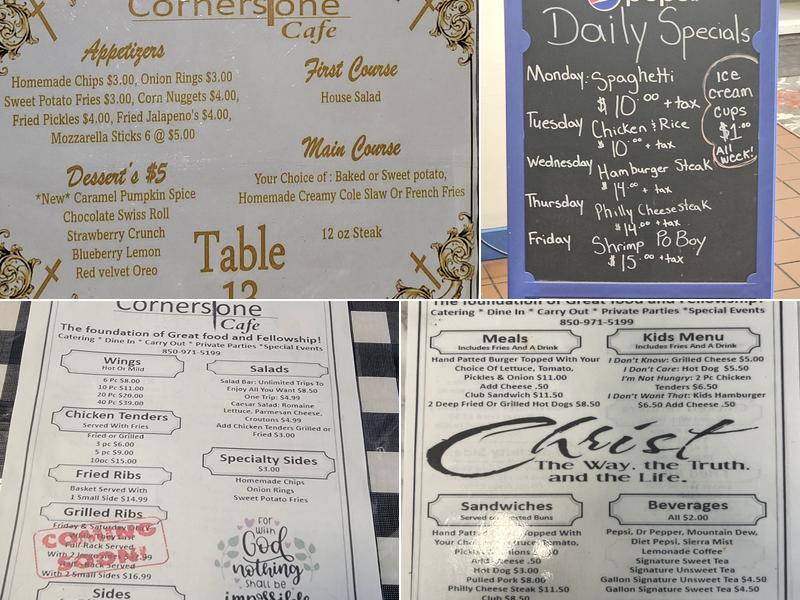 Cornerstone
Cafe
Appetizers
Homemade Chips $3.00, Onion Rings $3.00
Sweet Potato Fries $3.00, Corn Nuggets $4.00,
Fried Pickles $4.00, Fried Jalapeno's $4.00,
Mozzarella Sticks 6 @ $5.00
Dessert's $5
*New* Caramel Pumpkin Spice
Chocolate Swiss Roll
Strawberry Crunch
Blueberry Lemon
Red velvet Oreo
First Course
House Salad
Main Course
Your Choice of : Baked or Sweet potato,
Homemade Creamy Cole Slaw Or French Fries
12 oz Steak
Table
13
pepsi
Daily Specials
Monday: Spaghetti
$10.00 + tax
Tuesday Chicken & Rice
$10.00 + tax
Wednesday Hamburger Steak
$14.00 + tax
Thursday Philly Cheesesteak
$14.00 + tax
Friday Shrimp Po Boy
$15.00 + tax
Ice
cream
cups
$1.00
All
week!
Cornerstone
Cafe
The foundation of Great food and Fellowship!
Catering * Dine In * Carry Out * Private Parties *Special Events
850-971-5199
Wings
Hot Or Mild
6 Pc $8.00
10 Pc $11.00
20 Pc $20.00
40 Pc $39.00
Chicken Tenders
Served With Fries
Fried or Grilled
3 pc $6.00
5 pc $9.00
10pc $15.00
Fried Ribs
Basket Served With
1 Small Side $14.99
Grilled Ribs
Friday & Saturday Only
While They Last
Full Rack Served
With 2
Rack Served
With 2 Small Sides $16.99
COMING
SOON!
Sides
Salads
Salad Bar: Unlimited Trips To
Enjoy All You Want $8.50
One Trip: $4.99
Caesar Salad: Romaine
Lettuce, Parmesan Cheese,
Croutons $4.99
Add Chicken Tenders Grilled or
Fried $3.00
Specialty Sides
$3.00
Homemade Chips
Onion Rings
Sweet Potato Fries
For
With
God
nothing
shall be
impossible
The foundation of Great food and Fellowship!
Catering * Dine In * Carry Out * Private Parties * Special Events
850-971-5199
Meals
Includes Fries And A Drink
Hand Patted Burger Topped With Your
Choice Of Lettuce, Tomato,
Pickles & Onion $11.00
Add Cheese .50
Club Sandwich $11.50
2 Deep Fried Or Grilled Hot Dogs $8.50
Kids Menu
Includes Fries And A Drink
I Don't Know: Grilled Cheese $5.00
I Don't Care: Hot Dog $5.50
I'm Not Hungry: 2 Pc Chicken
Tenders $6.50
I Don't Want That: Kids Hamburger
$6.50 Add Cheese .50
Christ
The Way, the Truth,
and the Life.
Sandwiches
Served on Buns
Hand Patted Topped With
Your Tomato,
Pickles
Add Cheese .50
Hot Dog $3.00
Pulled Pork $8.00
Philly Cheese Steak $11.50
Club $8.50
Beverages
All $2.00
Pepsi, Dr Pepper, Mountain Dew,
Diet Pepsi, Sierra Mist
Lemonade Coffee
Signature Sweet Tea
Signature Unsweet Tea
Gallon Signature Unsweet Tea $4.50
Gallon Signature Sweet Tea $4.50